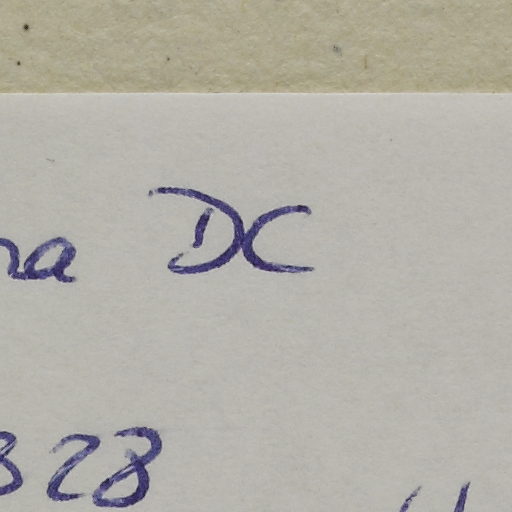 na DC
328